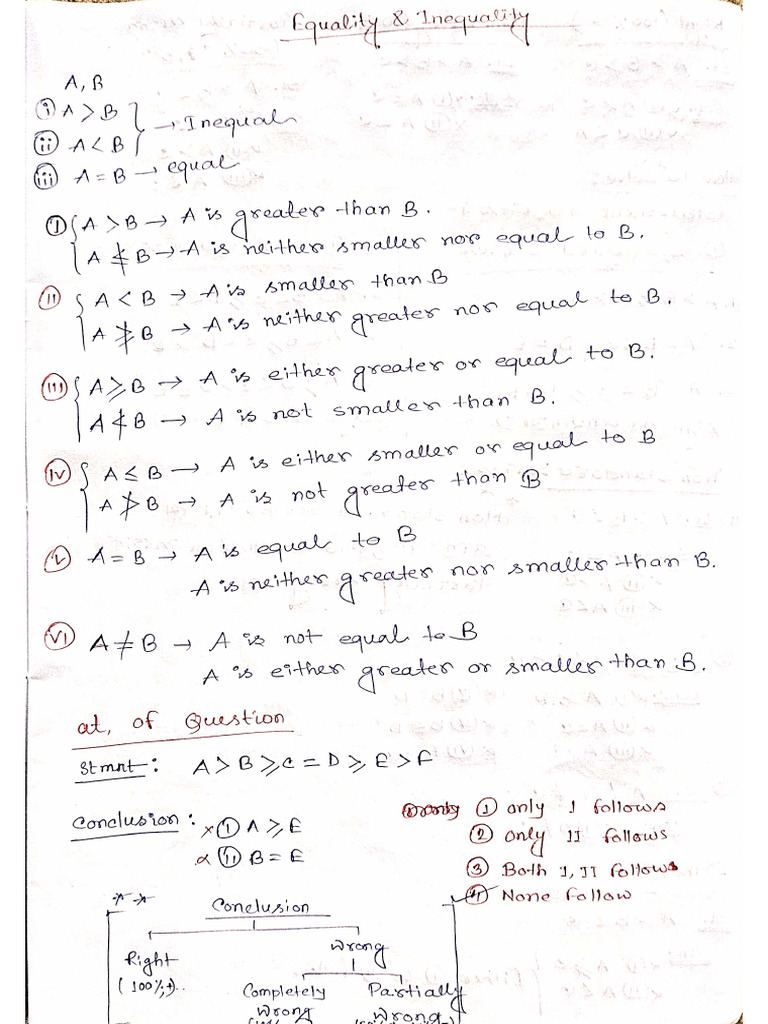 Equality & Inequality
A, B
(i) A > B
→ Inequal
(ii) A < B
(iii) A = B → equal
(I) A > B → A is greater than B.
A ≰ B → A is neither smaller nor equal to B.
(II) A < B → A is smaller than B
A ≱ B → A is neither greater nor equal to B.
(III) A ≥ B → A is either greater or equal to B.
A ≮ B → A is not smaller than B.
(IV) A ≤ B → A is either smaller or equal to B
A ≯ B → A is not greater than B
(V) A = B → A is equal to B
A is neither greater nor smaller than B.
(VI) A ≠ B → A is not equal to B
A is either greater or smaller than B.
at, of Question
Stmnt: A > B ≥ C = D ≥ E > F
Conclusion: × (I) A ≥ E
× (II) B = E
(1) only I follows
(2) only II follows
(3) Both I, II follows
(4) None follow
** Conclusion
Right
(100%)..
Wrong
Completely Wrong
Partially Wrong